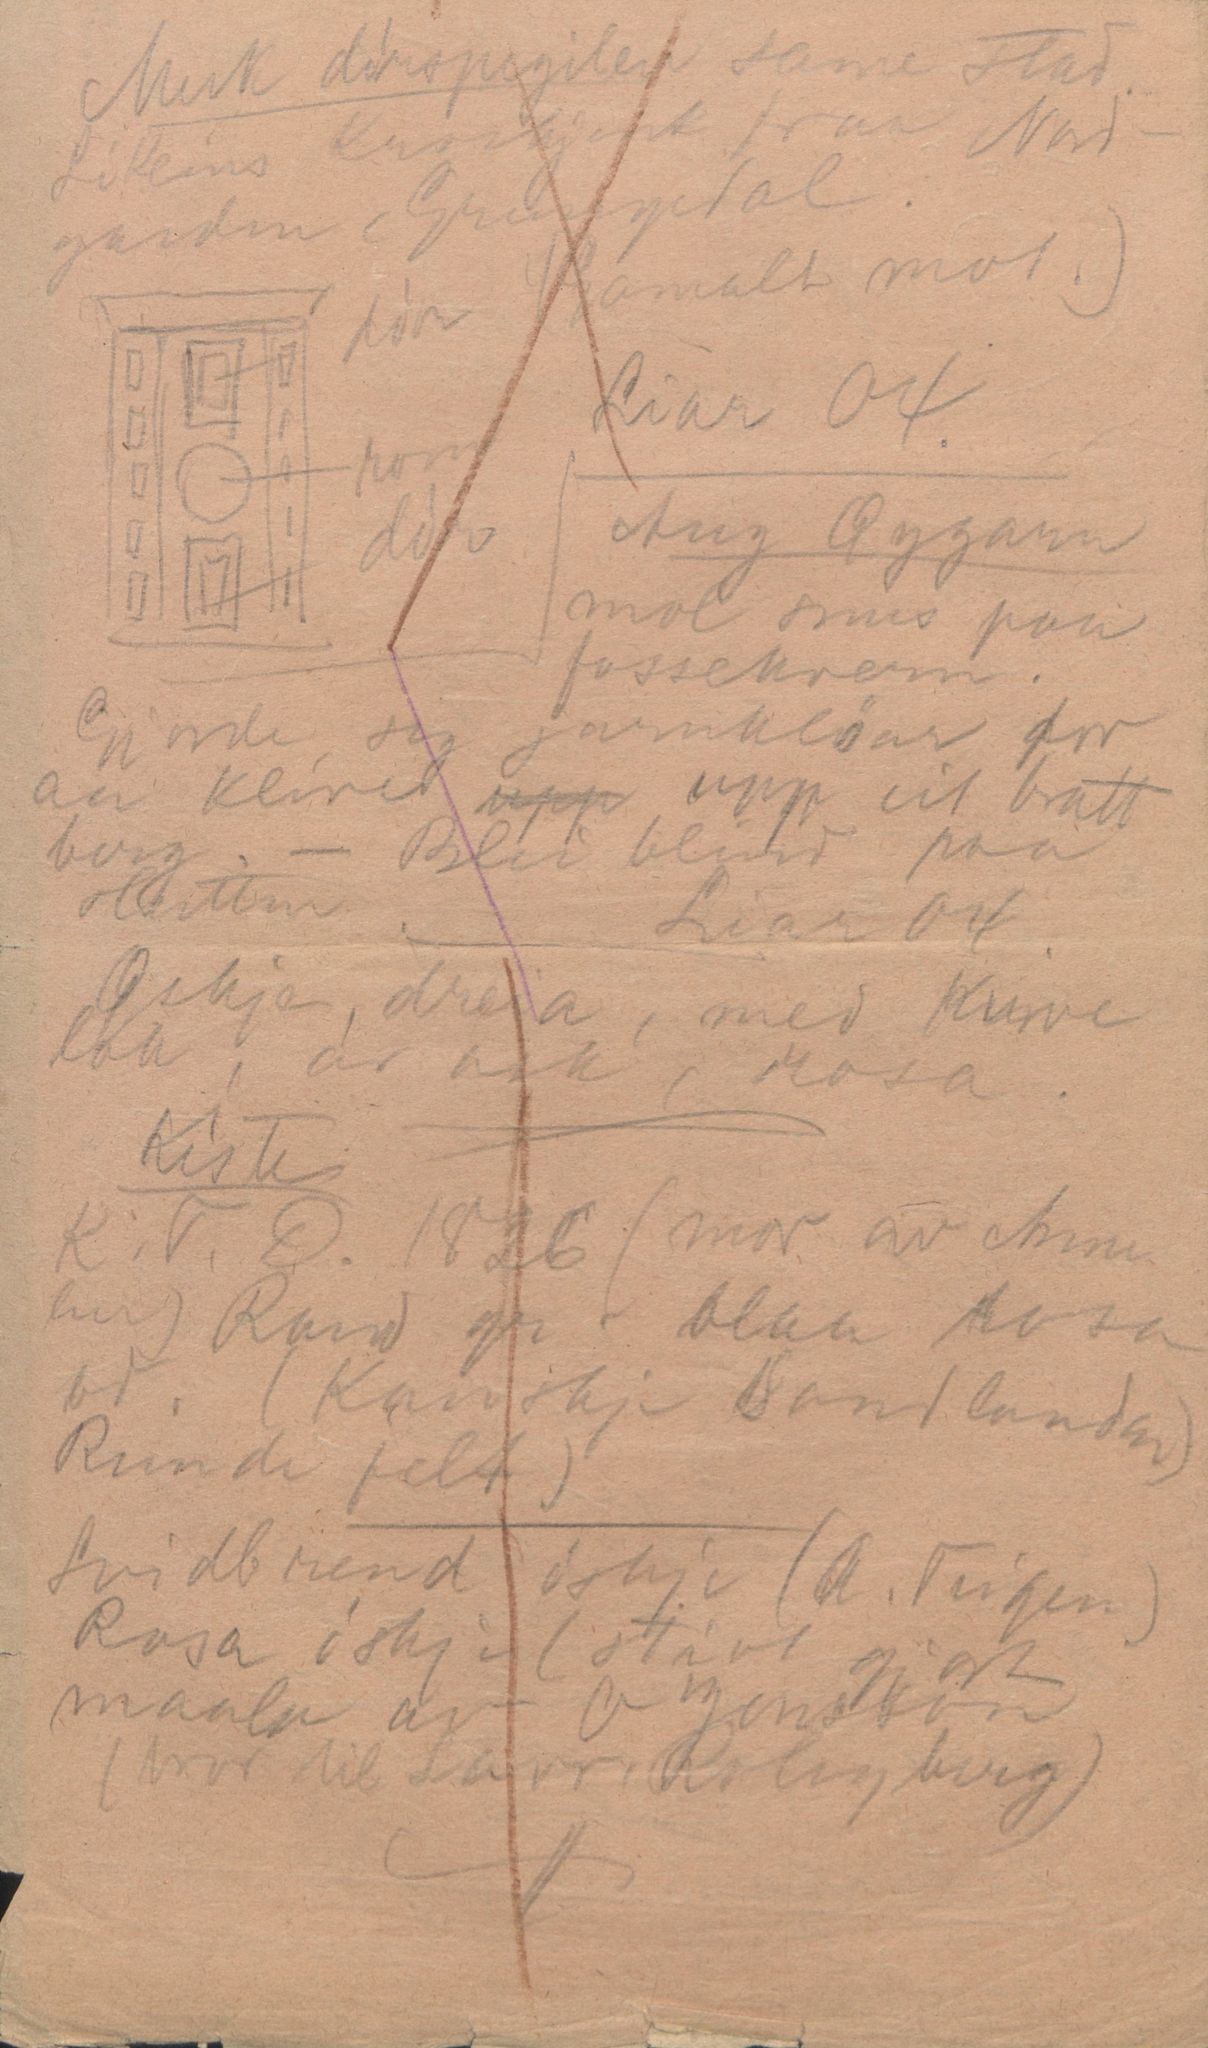 Merk dørspegilen same stad.
Likeins krosskjenk fraa Nord-
garden, Grungedal.
(Gamalt mot.)
dør
rom
dør
Liar 04.
Aug Øygarn
mol snus paa
fossekvern.
Gjorde sig jarnklöar for
aa kliva upp upp eit bratt
berg. — Blei blind paa
slutten. Liar 04.
Øskje, dreia, med kurve
lok, ór ask, rosa.
Kiste
K. T. D. 1826 (mor av Anne
her) Rand gr. blaa rosa
br. (Kanskje Sandlandar)
Runde felt)
Svidbrend öskje (A. Teigen)
Rosa öskje (stivt gjort
maala av O Jensson
(bror til Lavr. Rolegberg)